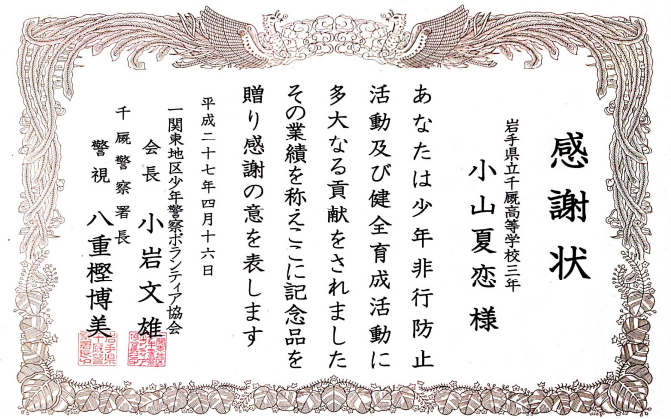 感謝状
岩手県立千厩高等学校三年
小山夏恋様
あなたは少年非行防止
活動及び健全育成活動に
多大なる貢献をされました
その業績を称えここに記念品を
贈り感謝の意を表します
平成二十七年四月十六日
一関東地区少年警察ボランティア協会
会長 小岩文雄
千厩警察署長
警視 八重樫博美